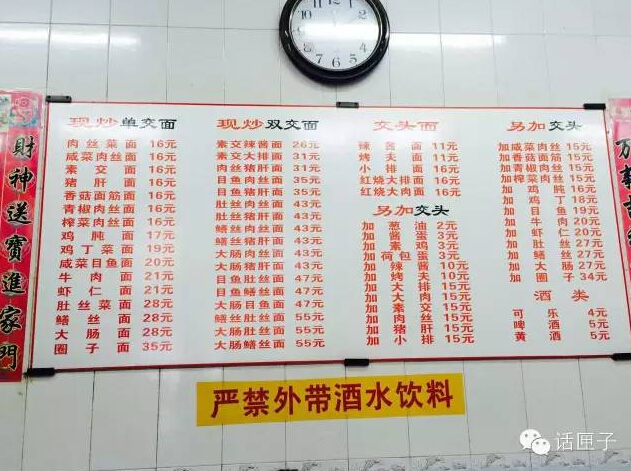 现炒单交面
肉丝菜面 16元
咸菜肉丝面 16元
素交面 16元
猪肝面 16元
香菇面筋面 16元
青椒肉丝面 16元
榨菜肉丝面 16元
鸡肫面 17元
鸡丁菜面 19元
咸菜目鱼面 20元
牛肉面 21元
虾仁面 21元
肚丝菜面 28元
鳝丝面 28元
大肠面 28元
圈子面 35元
现炒双交面
素交辣酱面 26元
素交大排面 31元
肉丝猪肝面 31元
目鱼肉丝面 35元
目鱼猪肝面 35元
肚丝肉丝面 43元
肚丝猪肝面 43元
鳝丝肉丝面 43元
鳝丝猪肝面 43元
大肠肉丝面 43元
大肠猪肝面 43元
目鱼肚丝面 47元
目鱼鳝丝面 47元
大肠目鱼面 47元
大肠肚丝面 55元
鳝丝肚丝面 55元
大肠鳝丝面 55元
交头面
辣酱面 11元
烤夫面 11元
小排面 16元
红烧大排面 16元
红烧大肉面 16元
另加交头
加葱油 2元
加酱蛋 3元
加素鸡 3元
加荷包蛋 3元
加辣酱 10元
加烤夫 10元
加大排 15元
加大肉 15元
加素交 15元
加肉丝 15元
加猪肝 15元
加小排 15元
另加交头
加咸菜肉丝 15元
加香菇面筋 15元
加青椒肉丝 15元
加榨菜肉丝 15元
加鸡肫 16元
加鸡丁 18元
加目鱼 19元
加牛肉 20元
加虾仁 20元
加肚丝 27元
加鳝丝 27元
加大肠 27元
加圈子 34元
酒类
可乐 4元
啤酒 5元
黄酒 5元
财神送寶進家門
万事
严禁外带酒水饮料
话匣子